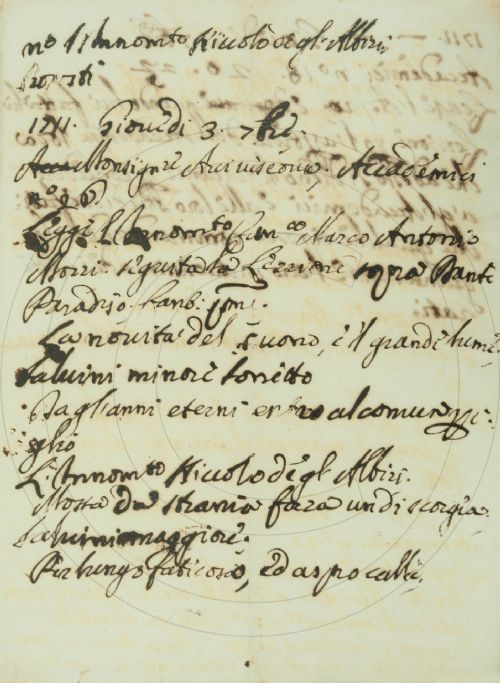 no Innom.to Niccolò degl'Albizi.
Proposti
1711. Giovedì 3. 7bre.
Monsigre Arcivescovo, Accademici
n.° 26.
Leggé L'Innom.to Fran.co Marco Antonio
Mozzi. seguita la Lezzione sopra Dante
Paradiso. Canb. pmo.
La novità del suono, e il grande lume,
Salvini minore corretto
Dagl'anni eterni
L'Innom.to Niccolò degl'Albizi.
Mossa da strania farà un di scorgia
Salvini maggiore.
Per lungo faticoso, ed aspro calle,